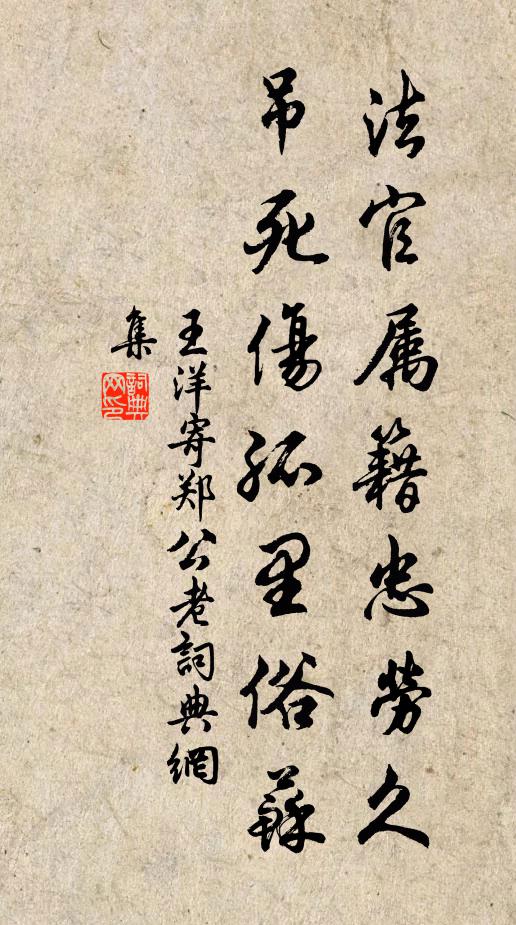 法官属籍忠劳久
吊死傷孤里俗蘇
王洋寄郑公老詞典網
集
詞典网印